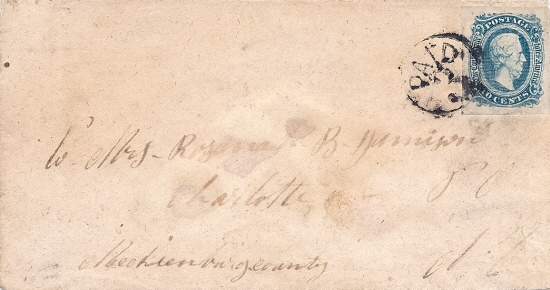 POSTAGE
10 CENTS
PAID
to Mrs. B. Jamison
Charlotte P O
Mecklenburg county
N. C.